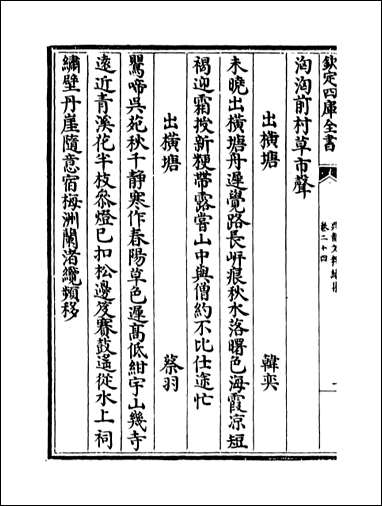 欽定四庫全書
卷二十四
洶洶前村草市聲
出橫塘 韓奕
未曉出橫塘舟遲覺路長岸痕秋水落曙色海霞涼短
褐迎霜授新粳帶露嘗山中與僧約不比仕途忙
出橫塘 蔡羽
鸎啼呉苑秋千静寒作春陽草色遲高低紺宇山幾寺
遠近青溪花半枝叅燈已扣松邊笈賽鼓遙從水上祠
繡壁丹崖隨意宿梅洲蘭渚纜頻移